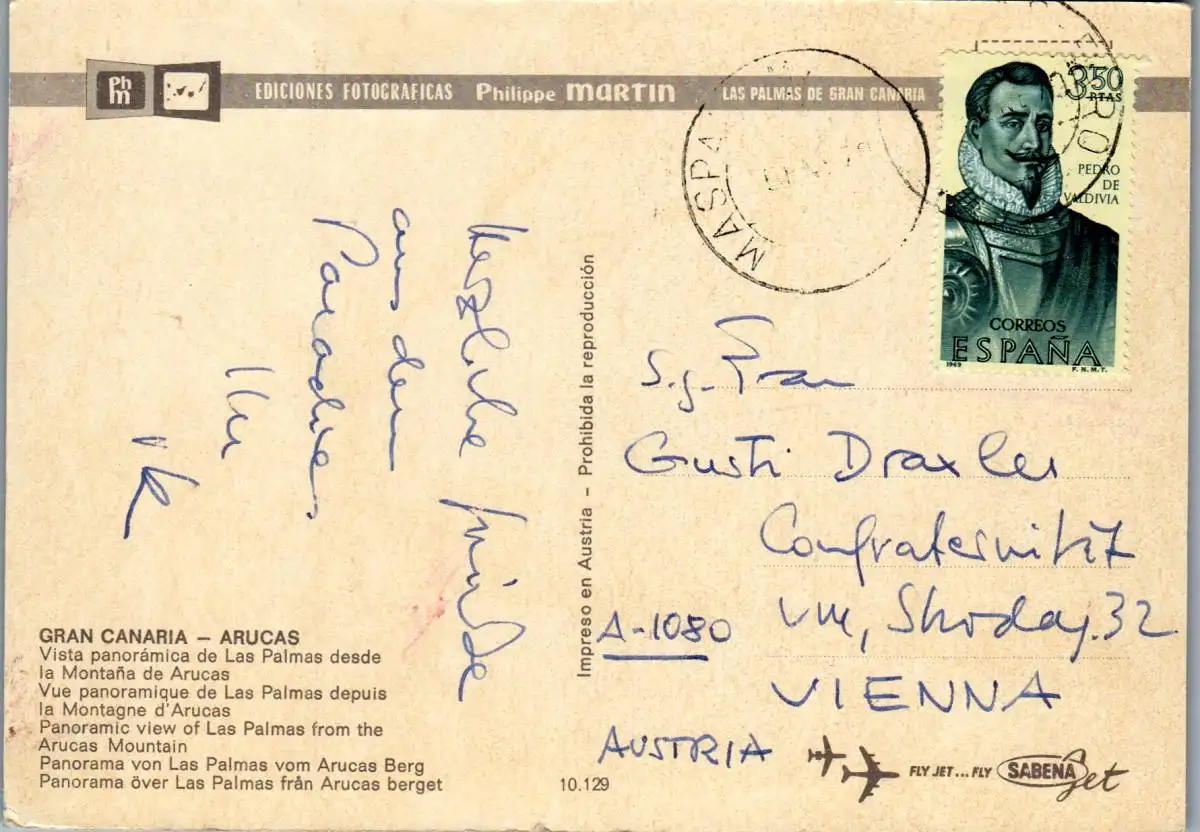 Ph m
EDICIONES FOTOGRAFICAS Philippe MARTIN
LAS PALMAS DE GRAN CANARIA
MASPA
ERO
3'50
PTAS
PEDRO
DE
VALDIVIA
CORREOS
ESPAÑA
1969
F. N. M. T.
Herzliche Grüße
aus dem
Paradies
Impreso en Austria - Prohibida la reproducción
S.g. Frau
Gusti Draxler
Confraternität
VIII, Skodag. 32
A-1080
VIENNA
AUSTRIA
GRAN CANARIA – ARUCAS
Vista panorámica de Las Palmas desde
la Montaña de Arucas
Vue panoramique de Las Palmas depuis
la Montagne d'Arucas
Panoramic view of Las Palmas from the
Arucas Mountain
Panorama von Las Palmas vom Arucas Berg
Panorama över Las Palmas från Arucas berget
10.129
FLY JET...FLY SABENA Jet